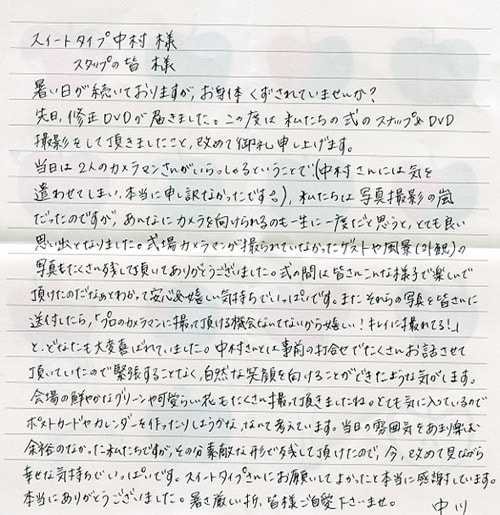 スイートタイプ中村様
スタッフの皆様
暑い日が続いておりますが、お身体くずされていませんか？
先日、修正DVDが届きました。この度は私たちの式のスナップ&DVD
撮影をして頂きましたこと、改めて御礼申し上げます。
当日は2人のカメラマンさんがいらっしゃるということで(中村さんには気を
遣わせてしまい、本当に申し訳なかったです。)、私たちは写真撮影の嵐
だったのですが、あんなにカメラを向けられるのも一生に一度だと思うと、とても良い
思い出となりました。式場カメラマンが撮られていなかったゲストや風景(外観)の
写真もたくさん残して頂いてありがとうございました。式の間は皆さんこんな様子で楽しんで
頂けたのだなぁとわかって安心&嬉しい気持ちでいっぱいです。またそれらの写真を皆さんに
送付したら、「プロのカメラマンに撮って頂ける機会なんてないから嬉しい！キレイに撮れてる！」
と、どなたも大変喜ばれていました。中村さんとは事前の打合せでたくさんお話させて
頂いていたので緊張することなく、自然な笑顔を向けることができたような気がします。
会場の鮮やかなグリーンや可愛らしい花もたくさん撮って頂きましたね。とても気に入っているので
ポストカードやカレンダーを作ったりしようかな、なんて考えています。当日の雰囲気をあまり楽しむ
余裕のなかった私たちですが、その分素敵な形で残して頂けたので、今、改めて見ながら
幸せな気持ちでいっぱいです。スイートタイプさんにお願いしてよかったと本当に感謝しています。
本当にありがとうございました。暑さ厳しい折、皆様ご自愛下さいませ。
中川